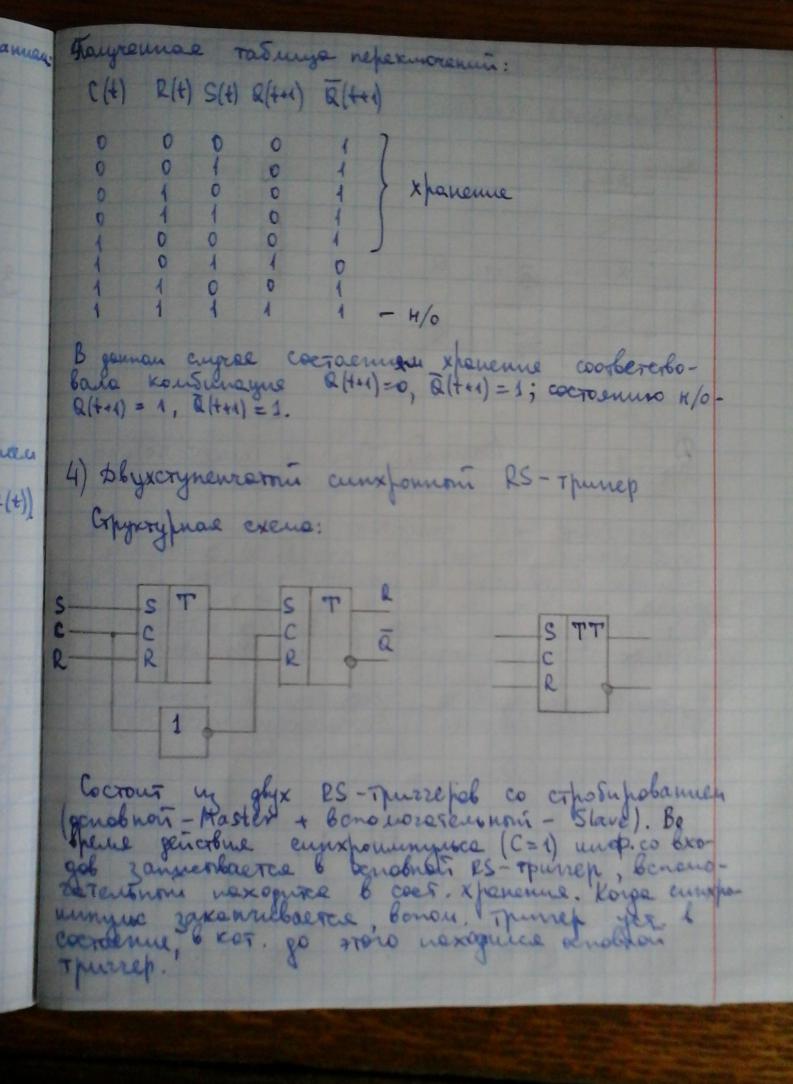 Полученная таблица переключений:
C(t) R(t) S(t) Q(t+1) Q̅(t+1)
0 0 0 0 1
0 0 1 0 1
0 1 0 0 1
0 1 1 0 1
хранение
1 0 0 0 1
1 0 1 1 0
1 1 0 0 1
1 1 1 1 1 – н/о
В данном случае состояниям хранения соответство-
вала комбинация Q(t+1)=0, Q̅(t+1)=1; состоянию н/о-
Q(t+1) = 1, Q̅(t+1)=1.
4) Двухступенчатый синхронный RS-тригер
Структурная схема:
S S T S T R
C C C Q̅
R R R
1
S TT
C
R
Состоит из двух RS-триггеров со стробированием
(основной-Master + вспомогательный - Slave). Во
время действия синхроимпульса (C=1) инф. со вхо-
дов записывается в основной RS-триггер, вспомо-
гательный находится в сост. хранения. Когда синхро-
импульс заканчивается, вспом. триггер уст. в
состояние, в кот. до этого находился основной
триггер.